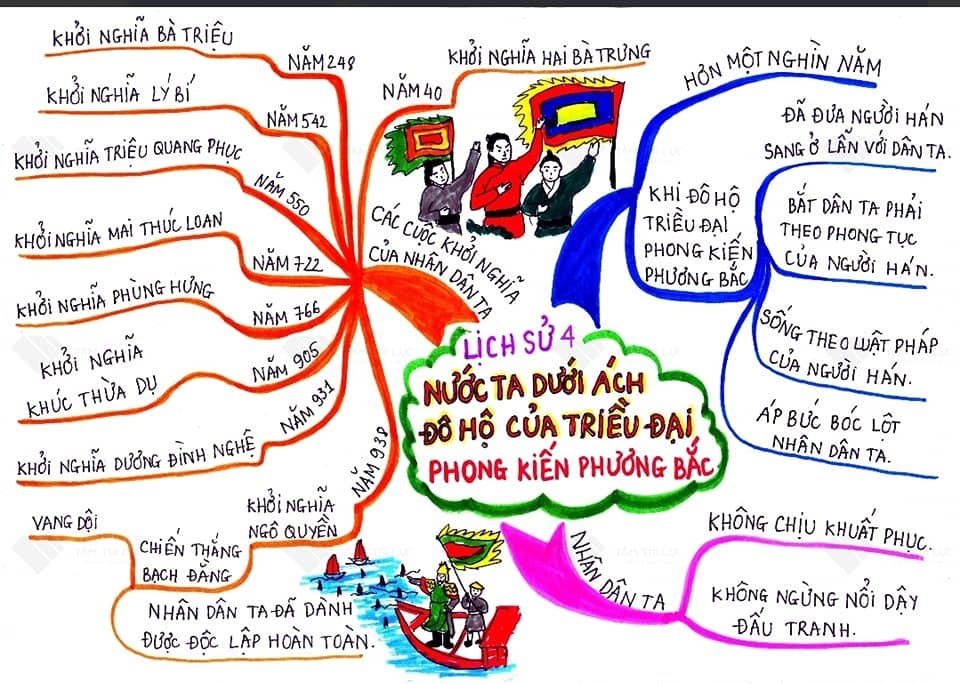 LỊCH SỬ 4
NƯỚC TA DƯỚI ÁCH
ĐÔ HỘ CỦA TRIỀU ĐẠI
PHONG KIẾN PHƯƠNG BẮC
CÁC CUỘC KHỞI NGHĨA
CỦA NHÂN DÂN TA
NĂM 40
KHỞI NGHĨA HAI BÀ TRƯNG
NĂM 248
KHỞI NGHĨA BÀ TRIỆU
NĂM 542
KHỞI NGHĨA LÝ BÍ
NĂM 550
KHỞI NGHĨA TRIỆU QUANG PHỤC
NĂM 722
KHỞI NGHĨA MAI THÚC LOAN
NĂM 766
KHỞI NGHĨA PHÙNG HƯNG
NĂM 905
KHỞI NGHĨA
KHÚC THỪA DỤ
NĂM 931
KHỞI NGHĨA DƯƠNG ĐÌNH NGHỆ
NĂM 938
KHỞI NGHĨA
NGÔ QUYỀN
CHIẾN THẮNG
BẠCH ĐẰNG
VANG DỘI
NHÂN DÂN TA ĐÃ DÀNH
ĐƯỢC ĐỘC LẬP HOÀN TOÀN.
KHI ĐÔ HỘ
TRIỀU ĐẠI
PHONG KIẾN
PHƯƠNG BẮC
HƠN MỘT NGHÌN NĂM
ĐÃ ĐƯA NGƯỜI HÁN
SANG Ở LẪN VỚI DÂN TA.
BẮT DÂN TA PHẢI
THEO PHONG TỤC
CỦA NGƯỜI HÁN.
SỐNG THEO LUẬT PHÁP
CỦA NGƯỜI HÁN.
ÁP BỨC BÓC LỘT
NHÂN DÂN TA.
NHÂN DÂN TA
KHÔNG CHỊU KHUẤT PHỤC.
KHÔNG NGỪNG NỔI DẬY
ĐẤU TRANH.